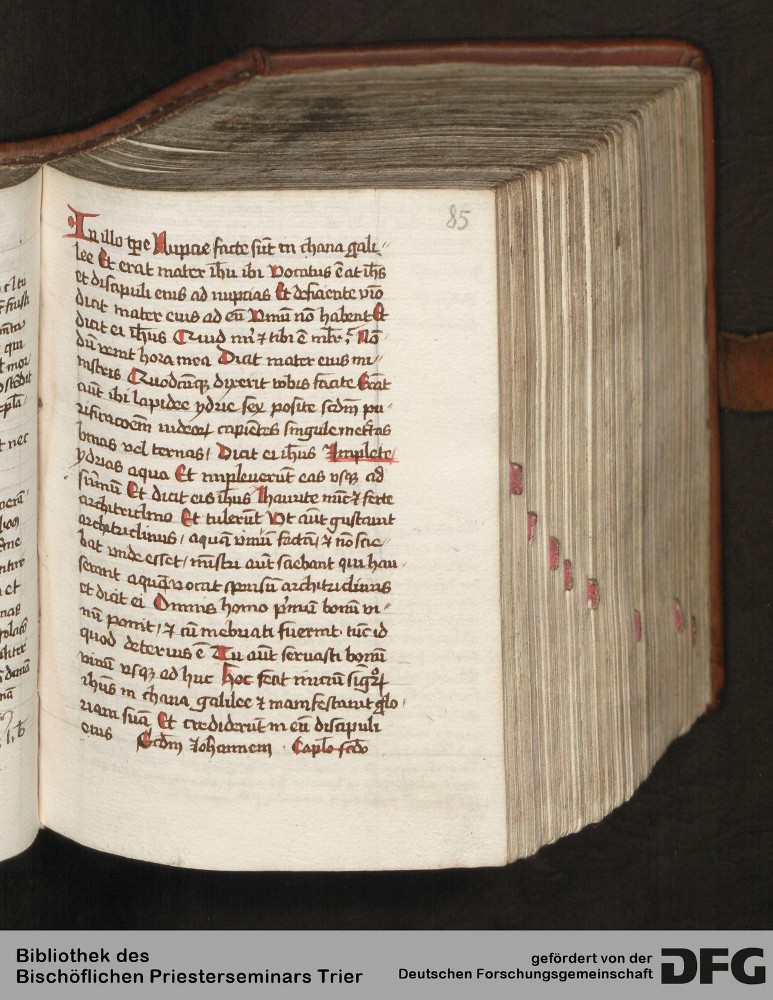 85
In illo tpe Nupcie facte sūt in chana gali
lee Et erat mater ihū ibi Vocatus ē āt ihs
et discipuli eius ad nupcias Et deficiente vīo
dicit mater eius ad eū Vinū nō habent Et
dicit ei ihus Quid m' ⁊ tibi ē mlr' Nō
dū venit hora mea Dicit mater eius mi
nistris Quodcūqꝫ dixerit vobis facite Erāt
aūt ibi lapidee ydrie sex posite scdm pu
rificacōem iudeoꝝ capiētes singule metretas
binas vel ternas Dicit ei ihus Implete
ydrias aqua Et impleuerūt eas vsqꝫ ad
sūmū Et dicit eis ihus Haurite nūc ⁊ ferte
architriclino Et tulerūt Vt aūt gustauit
architriclinus aquā vinū factā ⁊ nō scie
bat vnde esset mistri aūt sciebant qui hau
serant aquā vocat sponsū architriclinus
et dicit ei Omnis homo p'mū bonū vi
nū ponit ⁊ cū inebriati fuerint tūc id
quod deterius ē Tu aūt seruasti bonū
vinū vsqꝫ ad huc Hoc fecit iniciū signoꝝ
ihus in chana galilee ⁊ manifestauit glo
riam suā Et crediderūt in eū discipuli
eius Scdm Iohannem Caplo scdo
Bibliothek des
Bischöflichen Priesterseminars Trier
gefördert von der
Deutschen Forschungsgemeinschaft
DFG